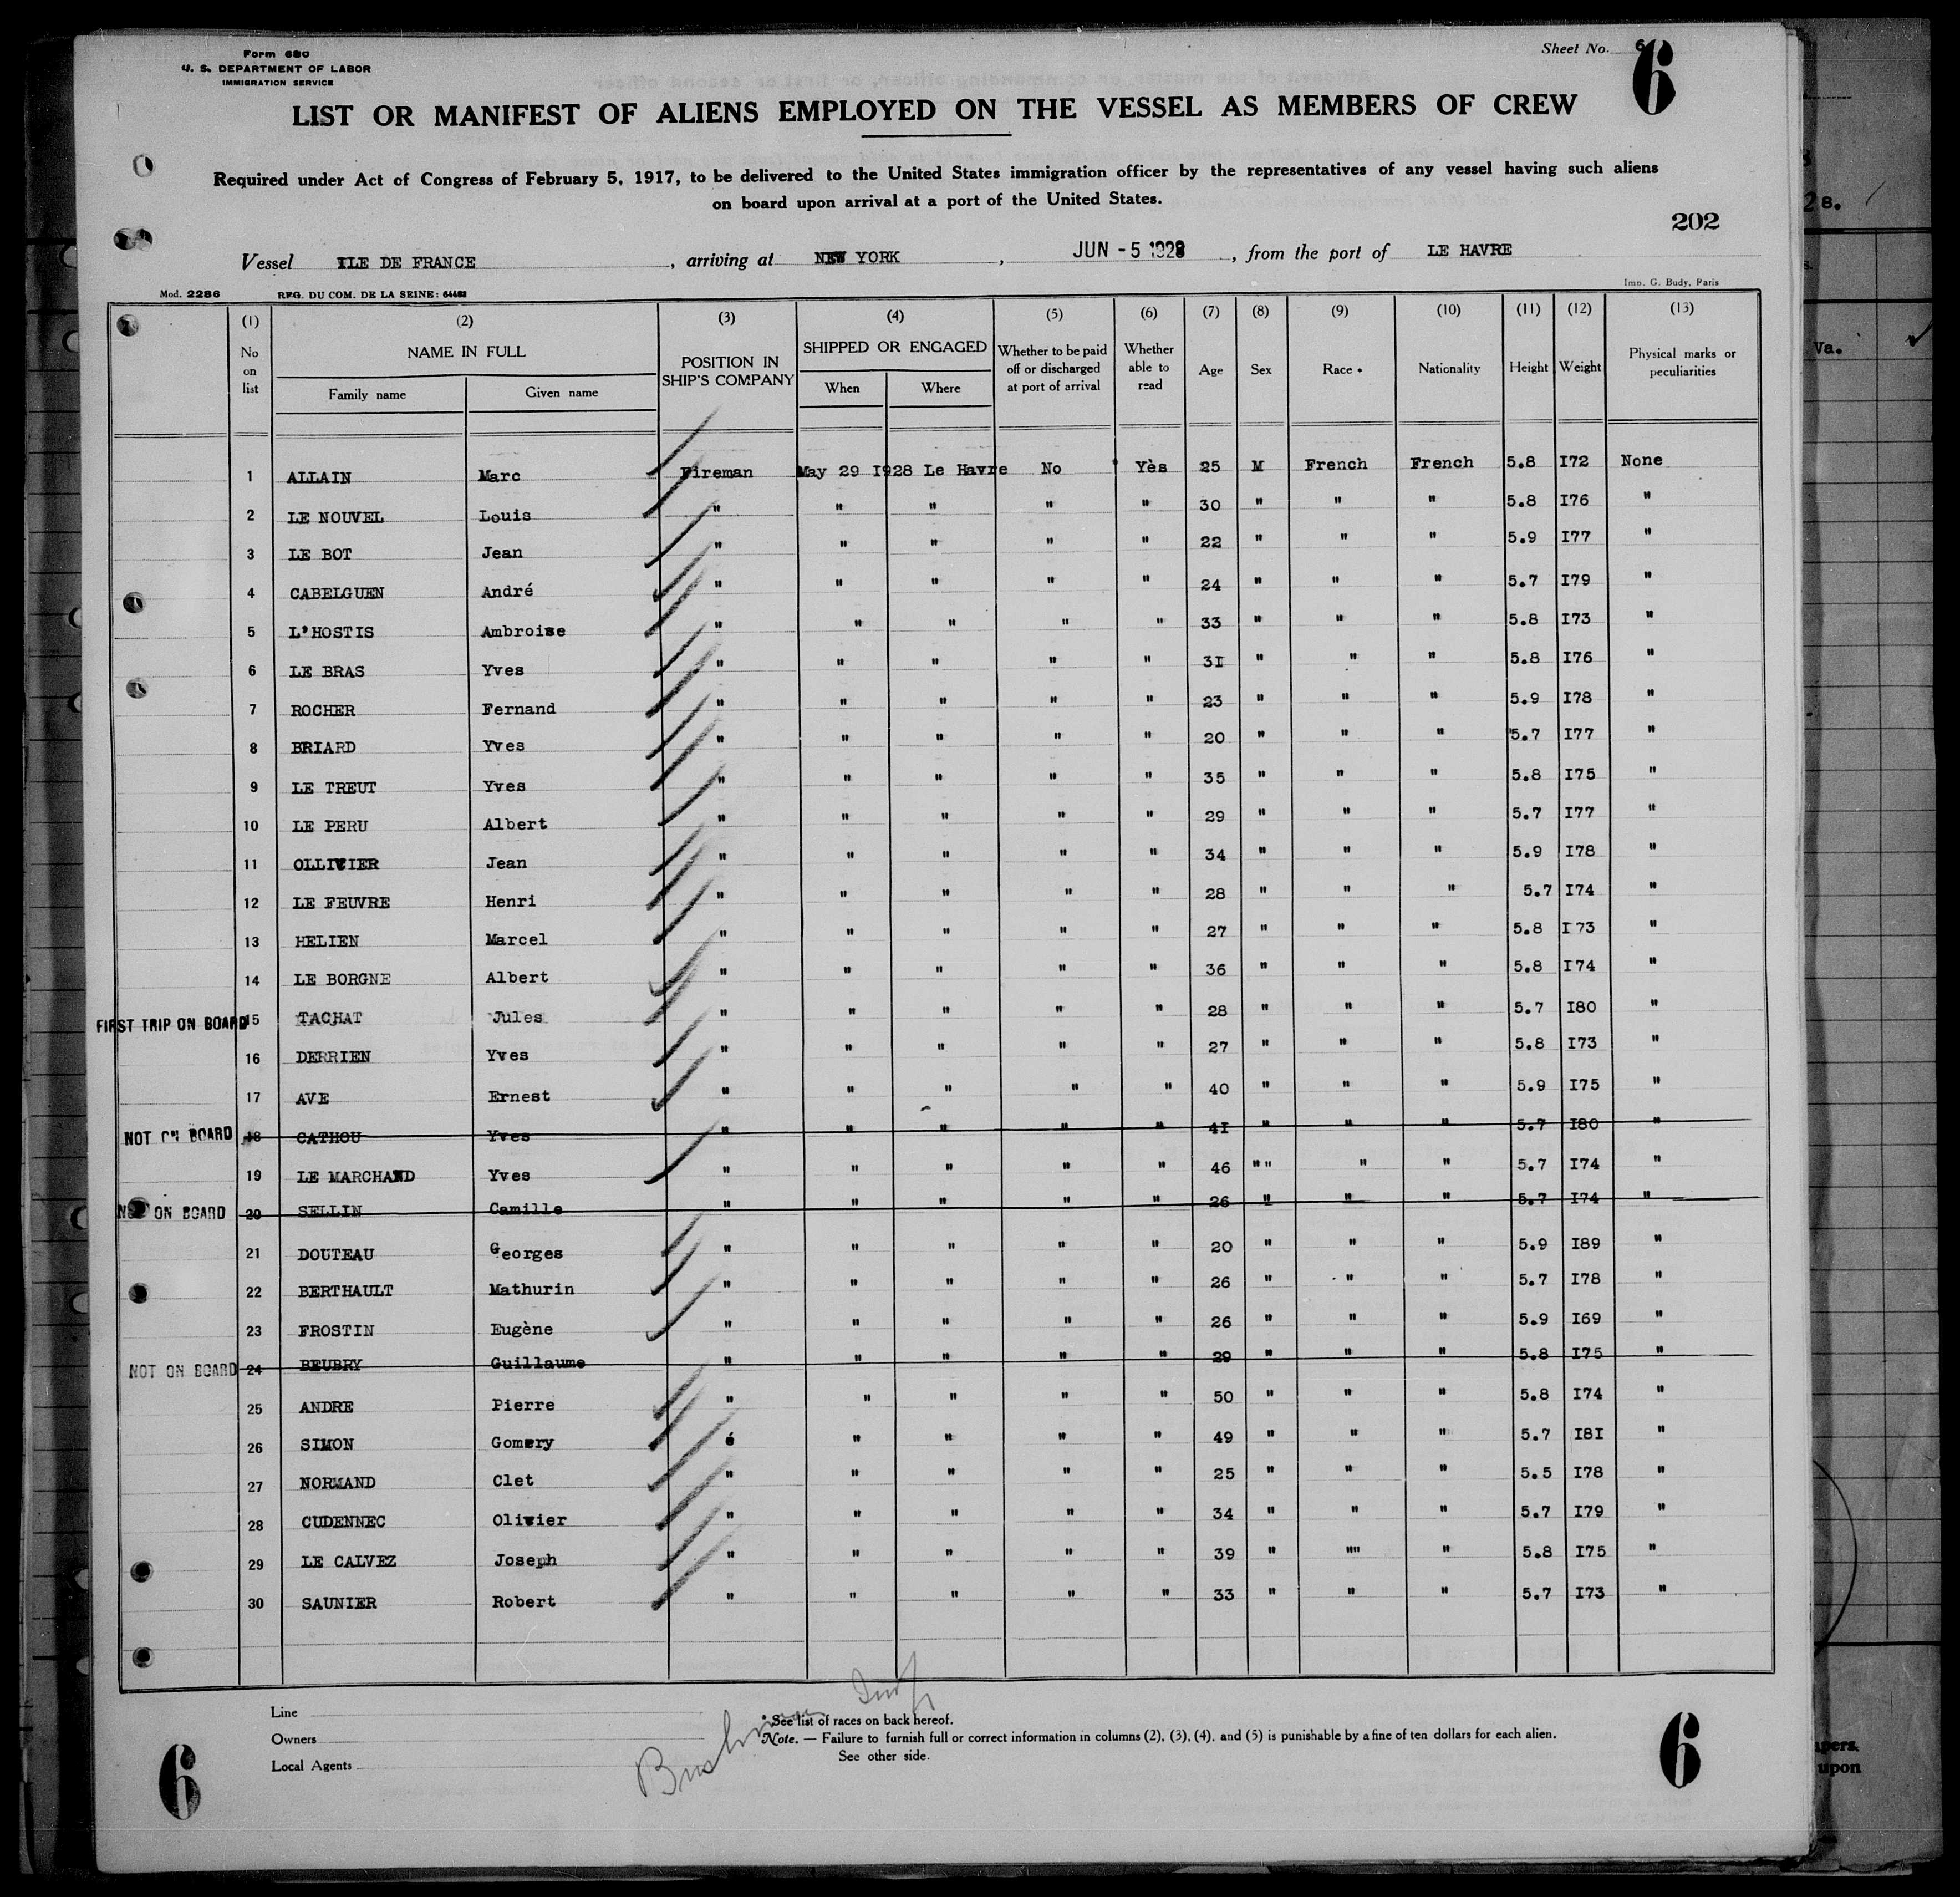 Form 680
U. S. DEPARTMENT OF LABOR
IMMIGRATION SERVICE
Sheet No. 6
6
LIST OR MANIFEST OF ALIENS EMPLOYED ON THE VESSEL AS MEMBERS OF CREW
Required under Act of Congress of February 5, 1917, to be delivered to the United States immigration officer by the representatives of any vessel having such aliens
on board upon arrival at a port of the United States.
202
Vessel ILE DE FRANCE, arriving at NEW YORK, JUN - 5 1928, from the port of LE HAVRE
Mod. 2286 REG. DU COM. DE LA SEINE: 64482 Imp. G. Budy, Paris
(1) (2) (3) (4) (5) (6) (7) (8) (9) (10) (11) (12) (13)
No on list NAME IN FULL Family name Given name POSITION IN SHIP'S COMPANY SHIPPED OR ENGAGED When Where Whether to be paid off or discharged at port of arrival Whether able to read Age Sex Race * Nationality Height Weight Physical marks or peculiarities
1 ALLAIN Marc Fireman May 29 I928 Le Havre No Yès 25 M French French 5.8 I72 None
2 LE NOUVEL Louis " " " " " 30 " " " 5.8 I76 "
3 LE BOT Jean " " " " " 22 " " " 5.9 I77 "
4 CABELGUEN André " " " " " 24 " " " 5.7 I79 "
5 L'HOSTIS Ambroise " " " " " 33 " " " 5.8 I73 "
6 LE BRAS Yves " " " " " 3I " " " 5.8 I76 "
7 ROCHER Fernand " " " " " 23 " " " 5.9 I78 "
8 BRIARD Yves " " " " " 20 " " " 5.7 I77 "
9 LE TREUT Yves " " " " " 35 " " " 5.8 I75 "
10 LE PERU Albert " " " " " 29 " " " 5.7 I77 "
11 OLLIVIER Jean " " " " " 34 " " " 5.9 I78 "
12 LE FEUVRE Henri " " " " " 28 " " " 5.7 I74 "
13 HELIEN Marcel " " " " " 27 " " " 5.8 I73 "
14 LE BORGNE Albert " " " " " 36 " " " 5.8 I74 "
FIRST TRIP ON BOARD 15 TACHAT Jules " " " " " 28 " " " 5.7 I80 "
16 DERRIEN Yves " " " " " 27 " " " 5.8 I73 "
17 AVE Ernest " " " " " 40 " " " 5.9 I75 "
NOT ON BOARD 18 CATHOU Yves " " " " " 4I " " " 5.7 I80 "
19 LE MARCHAND Yves " " " " " 46 " " " " 5.7 I74 "
NOT ON BOARD 20 SELLIN Camille " " " " " 26 " " " 5.7 I74 "
21 DOUTEAU Georges " " " " " 20 " " " 5.9 I89 "
22 BERTHAULT Mathurin " " " " " 26 " " " 5.7 I78 "
23 FROSTIN Eugène " " " " " 26 " " " 5.9 I69 "
NOT ON BOARD 24 BEUBRY Guillaume " " " " " 29 " " " 5.8 I75 "
25 ANDRE Pierre " " " " " 50 " " " 5.8 I74 "
26 SIMON Gomery " " " " " 49 " " " 5.7 I8I "
27 NORMAND Clet " " " " " 25 " " " 5.5 I78 "
28 CUDENNEC Olivier " " " " " 34 " " " 5.7 I79 "
29 LE CALVEZ Joseph " " " " " 39 " "" " 5.8 I75 "
30 SAUNIER Robert " " " " " 33 " " " 5.7 I73 "
Line
Owners
Local Agents
* See list of races on back hereof.
Note. — Failure to furnish full or correct information in columns (2), (3), (4), and (5) is punishable by a fine of ten dollars for each alien.
See other side.
6
6